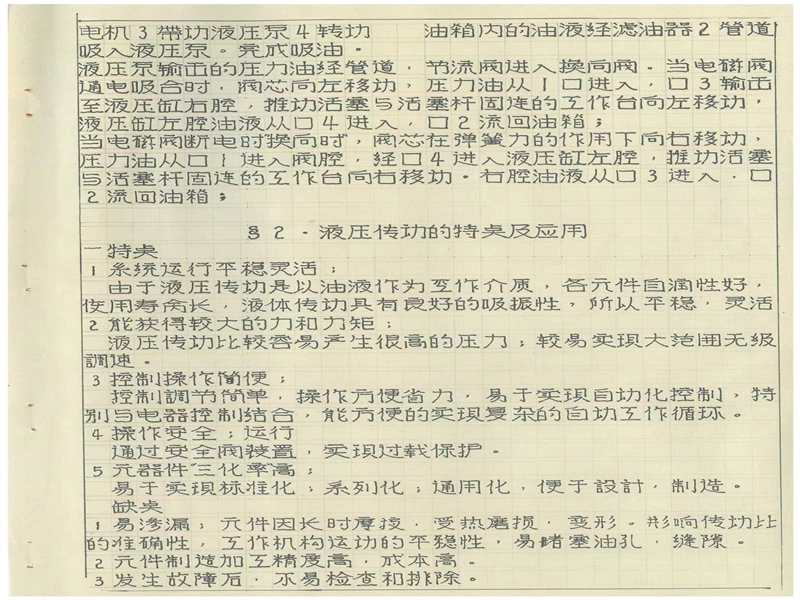 电机3带动液压泵4转动　　油箱内的油液经滤油器2管道
吸入液压泵。完成吸油。
液压泵输出的压力油经管道，节流阀进入换向阀。当电磁阀
通电吸合时，阀芯向左移动，压力油从口1口进入，口3输出
至液压缸右腔，推动活塞与活塞杆固连的工作台向左移动，
液压缸左腔油液从口4进入，口2流回油箱；
当电磁阀断电时换向时，阀芯在弹簧力的作用下向右移动，
压力油从口1进入阀腔，经口4进入液压缸左腔，推动活塞
与活塞杆固连的工作台向右移动。右腔油液从口3进入，口
2流回油箱；
§2·液压传动的特点及应用
一特点
1系统运行平稳灵活；
由于液压传动是以油液作为工作介质，各元件自润性好，
使用寿命长，液体传动具有良好的吸振性，所以平稳，灵活
2能获得较大的力和力矩；
液压传动比较容易产生很高的压力；较易实现大范围无级
調速。
3控制操作简便；
控制調节简单，操作方便省力，易于实现自动化控制，特
别与电器控制结合，能方便的实现复杂的自动工作循环。
4操作安全；运行
通过安全阀装置，实现过载保护。
5元器件三化率高；
易于实现标准化；系列化；通用化，便于設计，制造。
缺点
1易渗漏；元件因长时摩擦，受热磨损，变形。影响传动比
的准确性，工作机构运动的平稳性，易堵塞油孔，缝隙。
2元件制造加工精度高，成本高。
3发生故障后，不易检查和排除。